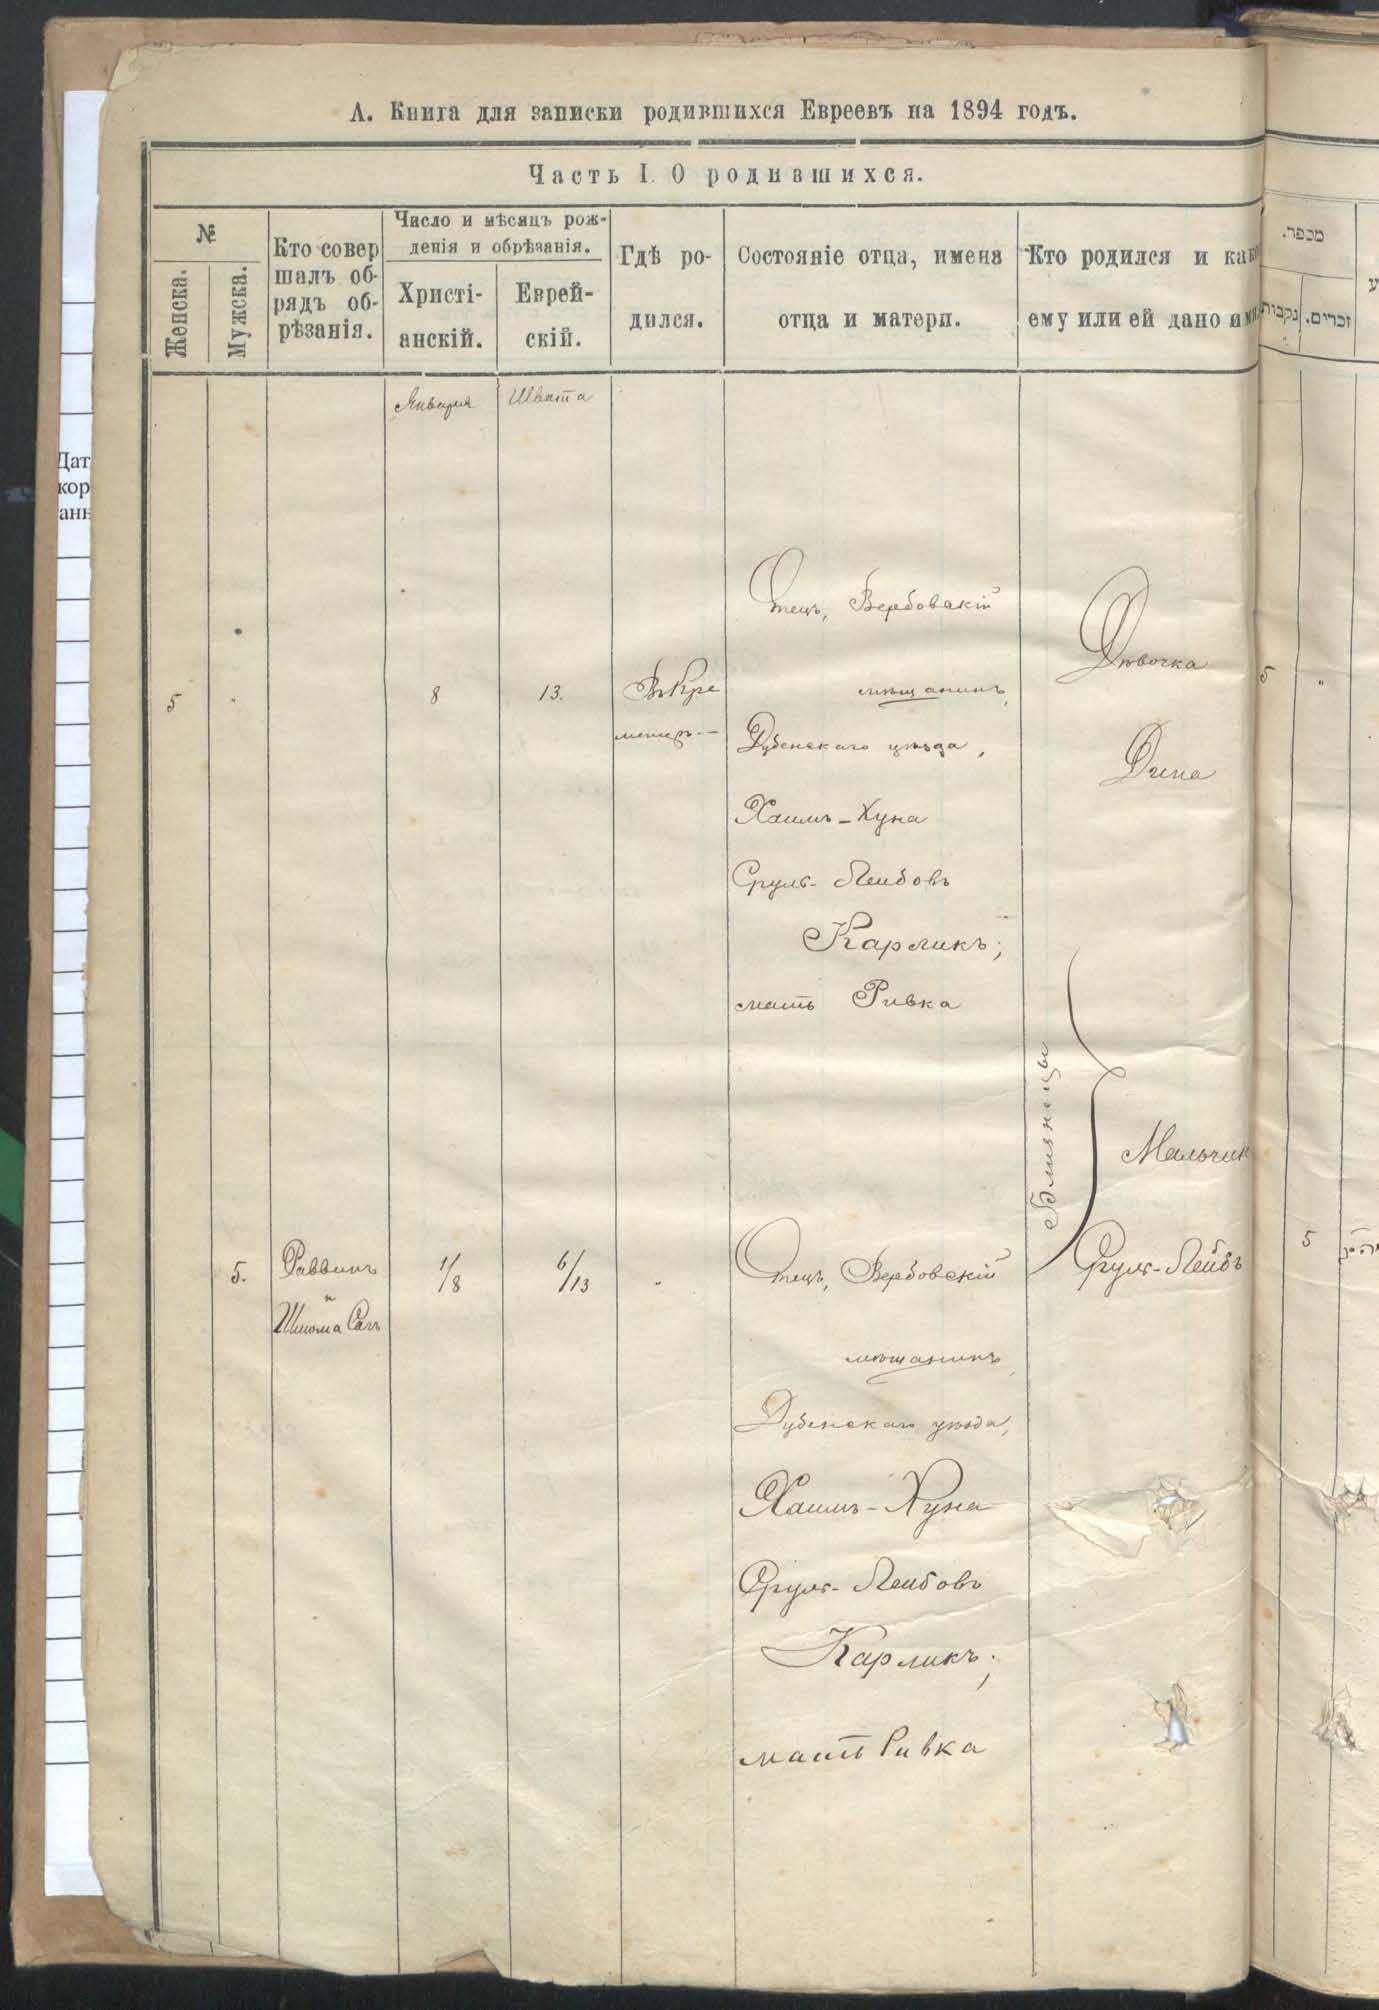 А. Книга для записки родившихся Евреевъ на 1894 годъ.
Часть I. О родившихся.
№
Женска.
Мужска.
Кто совер
шалъ об-
рядъ об-
рѣзанія.
Число и мѣсяцъ рож-
денія и обрѣзанія.
Христі-
анскій.
Еврей-
скій.
Гдѣ ро-
дился.
Состояніе отца, имена
отца и матери.
Кто родился и како
ему или ей дано им
מכפר.
נקבות
זכרים.
Января
Швата
Дат
кор
анн
5
"
8
13.
Въ Кре
менцѣ. —
Отецъ, Вербовскій
мѣщанинъ,
Дубенскаго уѣзда,
Хаимъ-Хуна
Сруль-Лейбовъ
Карликъ;
мать Ривка
Дѣвочка
Дина
5
"
Близнецы
5.
Раввинъ
и
Шлома Сасъ
1/8
6/13
"
Отецъ, Вербовскій
мѣщанинъ,
Дубенскаго уѣзда,
Хаимъ-Хуна
Сруль-Лейбовъ
Карликъ;
мать Ривка
Мальчик
Сруль-Лейбъ
5